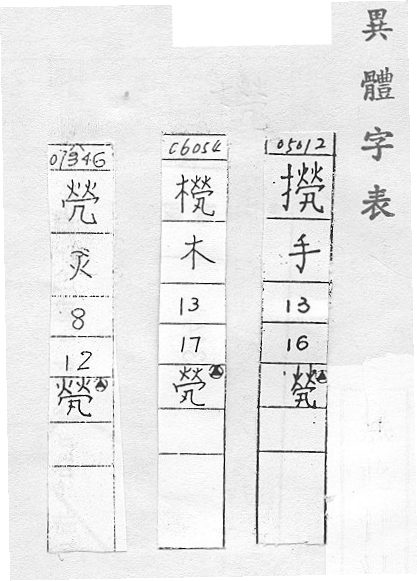 異體字表
05012
手
13
16
煢
C6054
橩
木
13
17
煢
07346
焭
火
8
12
煢